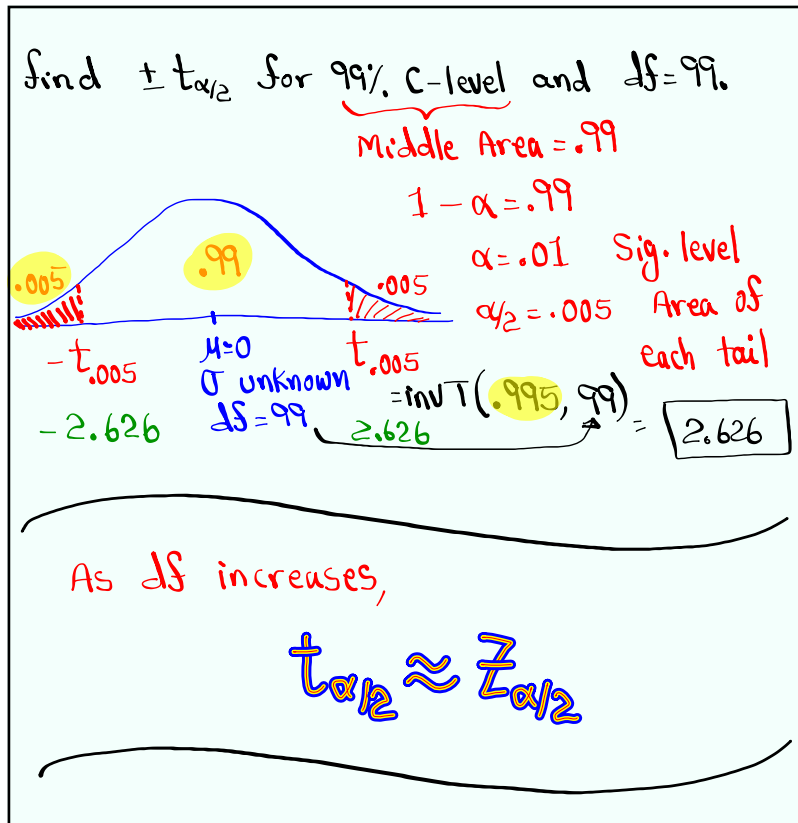 find ± t α/2 for 99% C-level and df=99.
Middle Area = .99
1 - α = .99
α = .01 Sig. level
α/2 = .005 Area of
each tail
.005 .99 .005
-t.005 μ=0 t.005
σ unknown
df=99
= invT(.995, 99) = 2.626
-2.626 2.626
As df increases,
t α/2 ≈ Z α/2